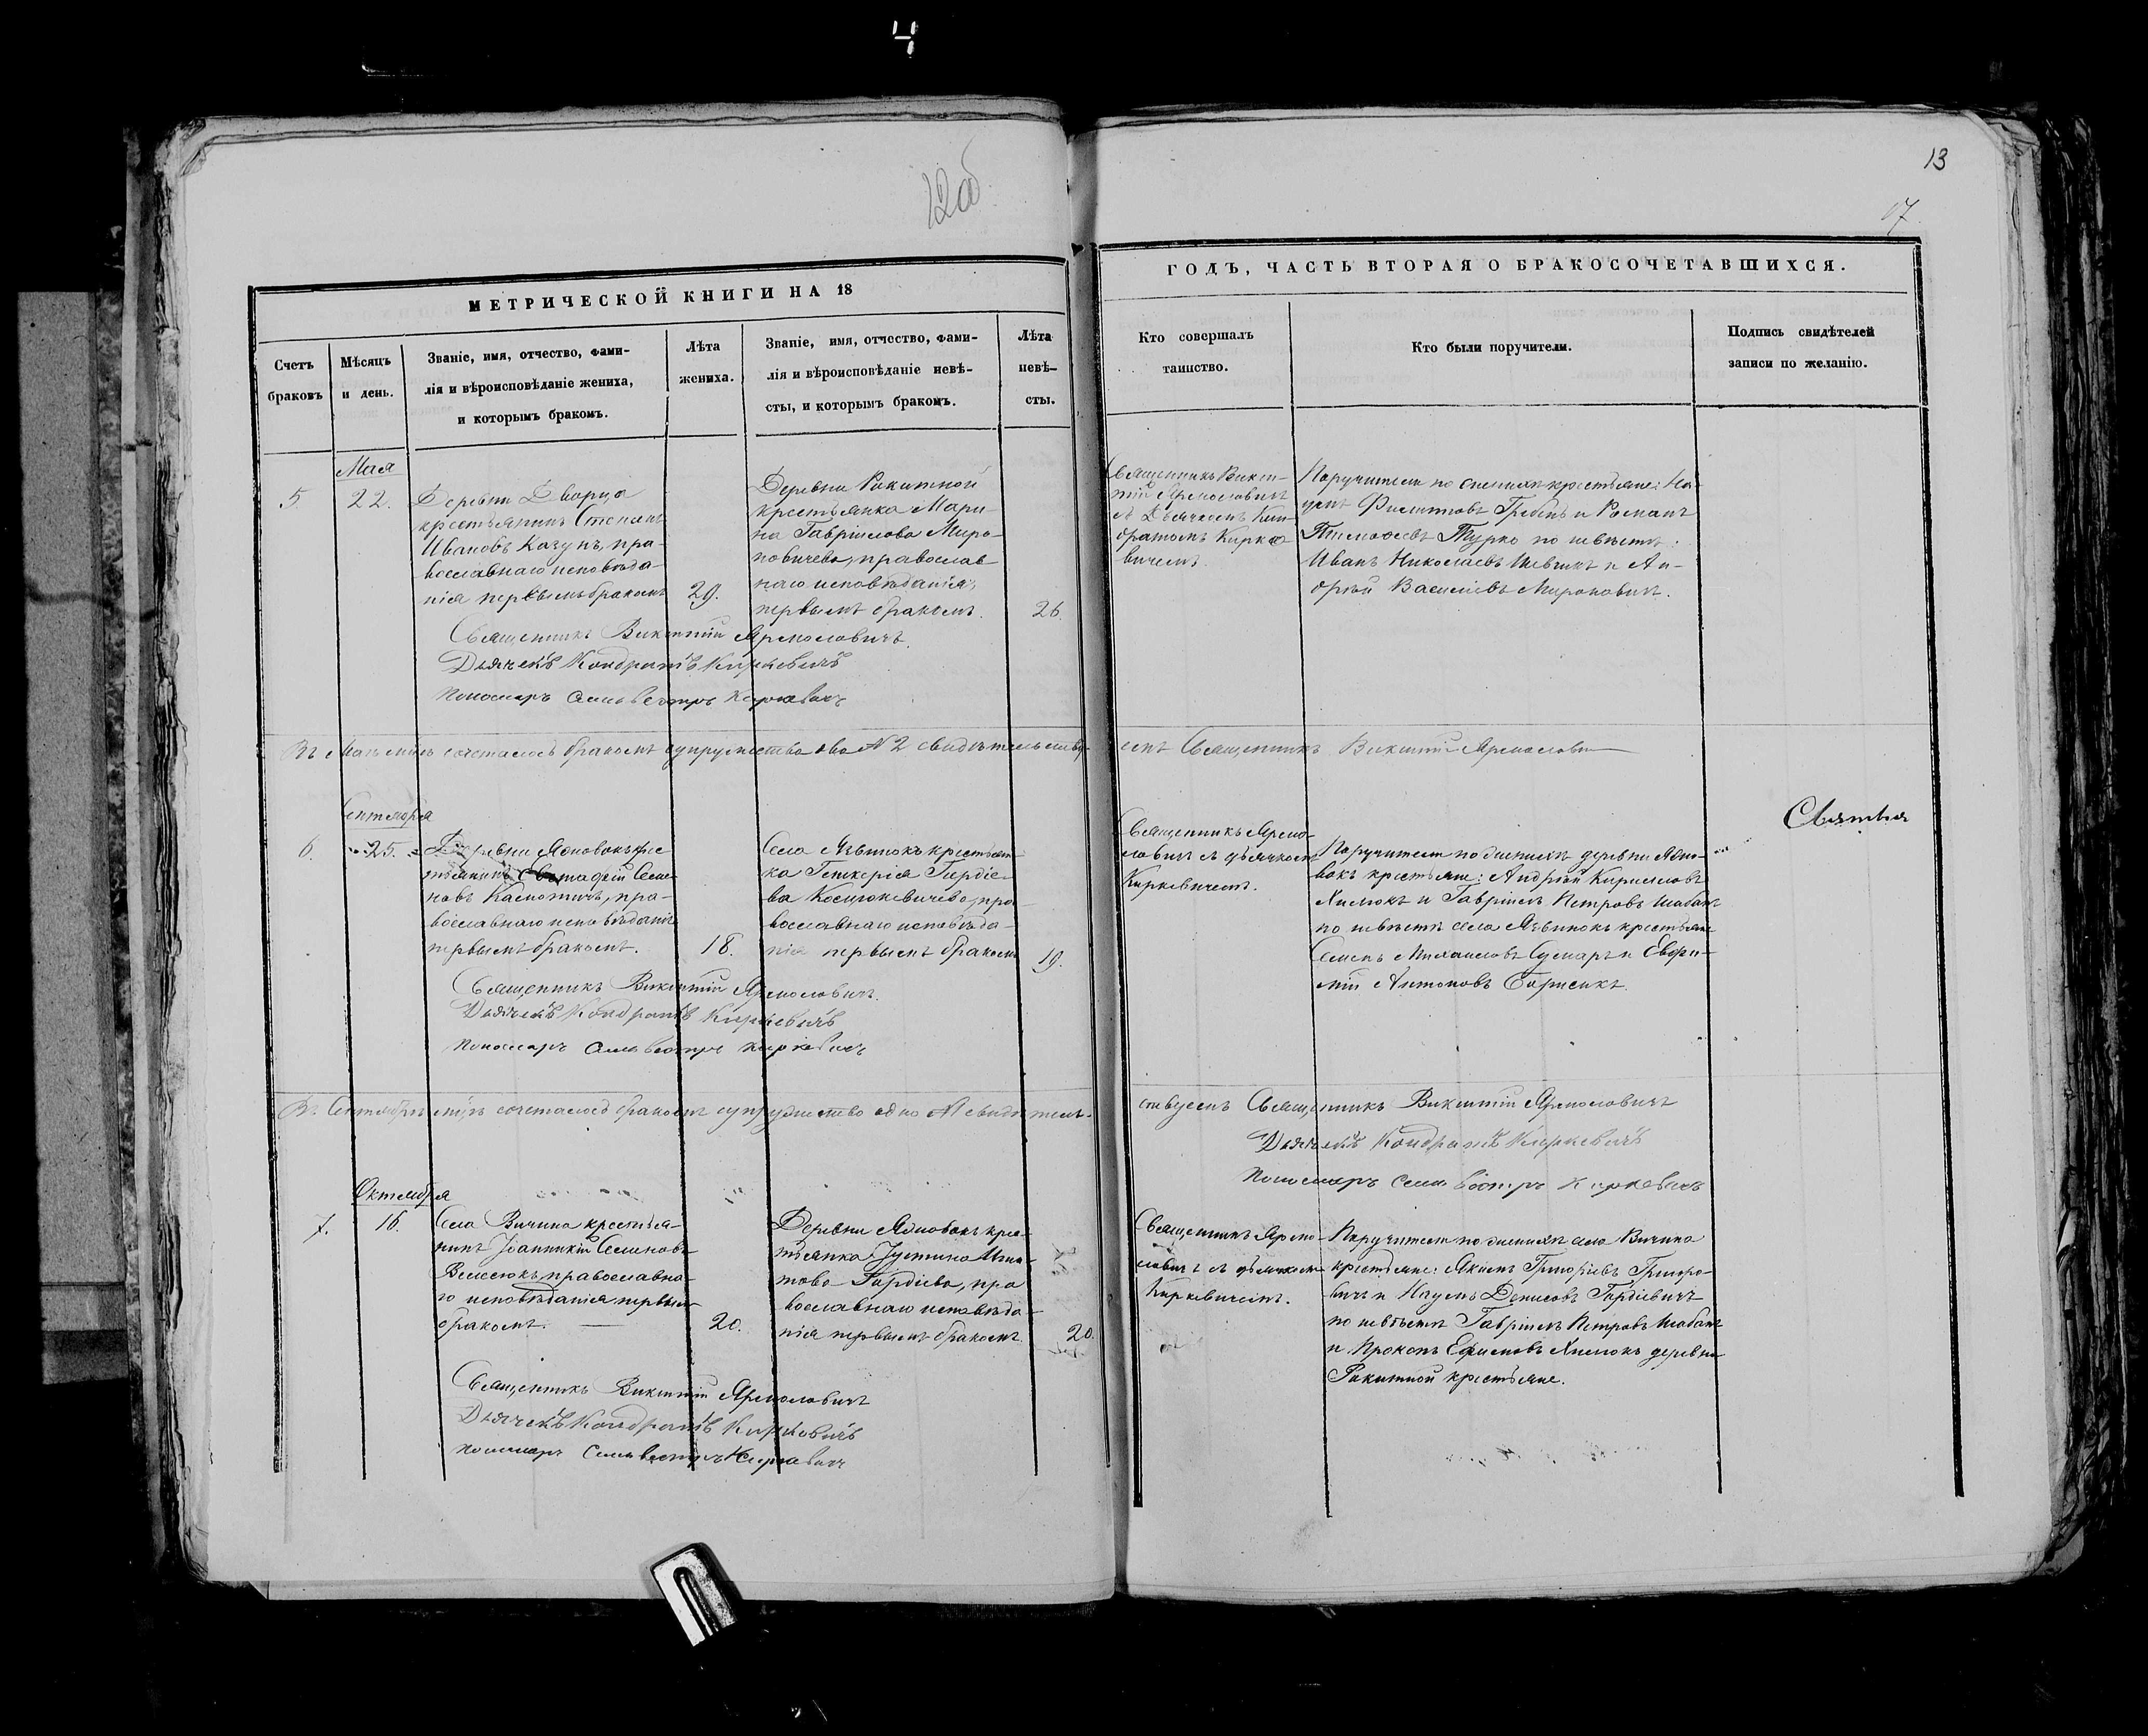 12об
13
17
МЕТРИЧЕСКОЙ КНИГИ НА 18
ГОДЪ, ЧАСТЬ ВТОРАЯ О БРАКОСОЧЕТАВШИХСЯ.
Счетъ
браковъ
Мѣсяцъ
и день.
Званіе, имя, отчество, фами-
лія и вѣроисповѣданіе жениха,
и которымъ бракомъ.
Лѣта
жениха.
Званіе, имя, отчество, фами-
лія и вѣроисповѣданіе невѣ-
сты, и которымъ бракомъ.
Лѣта
невѣ-
сты.
Кто совершалъ
таинство.
Кто были поручители.
Подпись свидѣтелей
записи по желанію.
Мая
5
22.
Деревни Дворца
крестьянинъ Степанъ
Ивановъ Качунъ, пра-
вославнаго исповѣда-
нія первымъ бракомъ
29.
Деревни Ракитной
крестьянка Мари-
на Гавріилова Миро-
новичева, православ
наго исповѣданія,
первымъ бракомъ.
26.
Священникъ Викен-
тій Ярмоловичъ
съ Дьячкомъ Кон-
дратомъ Кирке
вичемъ.
Поручители по женихѣ крестьяне: На-
умъ Филиповъ Гребень и Романъ
Тимофеевъ Турко по невѣстѣ:
Иванъ Николаевъ Шевчикъ и Ан-
дрей Василіевъ Мироновичъ.
Священникъ Викентій Ярмоловичъ.
Дьячекъ Кондратъ Киркевичъ
Пономаръ Сильвестръ Киркевичъ
Въ Маѣ мцѣ сочеталось бракомъ супружества два № 2 свидѣтельству-
етъ Священникъ Викентій Ярмолович
Сентября
6.
25.
Деревни Ядновокъ кре
тьянинъ Семе-
новъ правиславнаго исповѣданія
первымъ бракомъ.
18.
Села Лѣвинокъ крестьян-
ка Гликерія Гордіе-
ва Костюкевичева, пра-
вославнаго исповѣда-
нія первымъ бракомъ
19.
Священникъ Ярмо-
ловичъ съ дьячкомъ
Киркевичемъ.
Поручители по женихѣ деревни Ядно-
вокъ крестьяне: Андрей Кирилловъ
Хилюкъ и Гавріилъ Петровъ Шабанъ
по невѣстѣ села Лѣвинокъ крестьяне
Семенъ Михаиловъ и Евфи-
мій Антоновъ Борисикъ.
Священникъ Викентій Ярмоловичъ.
Дьячекъ Кондратъ Киркевичъ
Пономаръ Сильвестръ Киркевичъ
Въ Сентябрѣ мцѣ сочеталось бракомъ супружество одно №1 свидѣтель-
ствуетъ Священникъ Викентій Ярмоловичъ
Дьячекъ Кондратъ Киркевичъ
Пономаръ Сильвестръ Киркевичъ
Октября
7.
16.
Села Вичина крестья-
нинъ Іоанникій Семеновъ
Велесюкъ, православна-
го исповѣданія первымъ
бракомъ.
20.
Деревни Ядновокъ крес-
тьянка Іустина Игна-
това Гордіева, пра
вославнаго исповѣда-
нія первымъ бракомъ
20.
Священникъ Ярмо-
ловичъ съ дьячкомъ
Киркевичемъ.
Поручители по женихѣ села Вичина
крестьяне: Якимъ Григорьевъ Григоро-
вичъ и Наумъ Денисовъ Гордіевичъ
по невѣстѣ Гавріилъ Петровъ Шабанъ
и Прокопъ Ефимовъ Хилюкъ деревни
Ракитной крестьяне.
Священникъ Викентій Ярмоловичъ
Дьячекъ Кондратъ Киркевичъ
Пономаръ Сильвестръ Киркевичъ